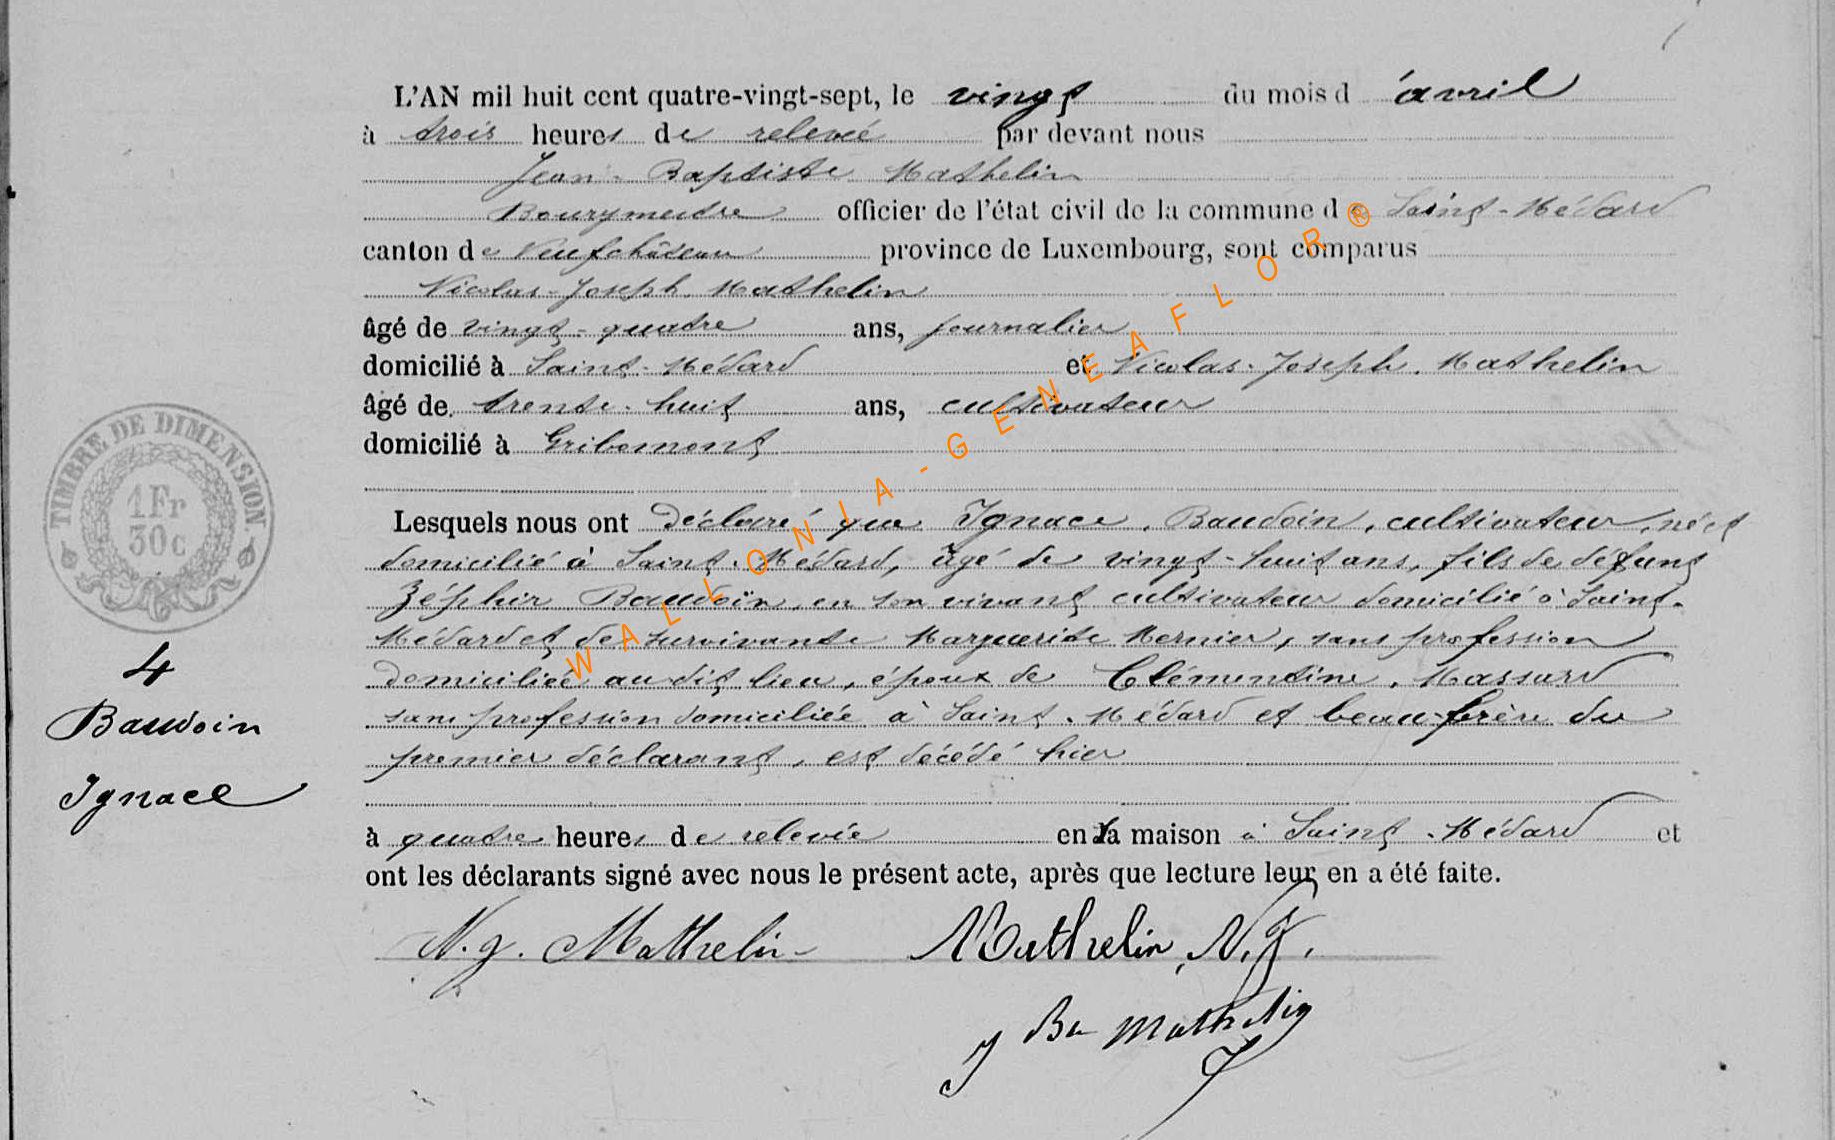 L'AN mil huit cent quatre-vingt-sept, le vingt du mois d'avril
à trois heures de relevée par devant nous
Jean-Baptiste Mathelin
Bourgmestre officier de l'état civil de la commune de Saint-Médard
canton de Neufchâteau province de Luxembourg, sont comparus
Nicolas-Joseph Mathelin
âgé de vingt-quatre ans, journalier
domicilié à Saint-Médard et Nicolas-Joseph Mathelin
âgé de trente-huit ans, cultivateur
domicilié à Gribomont
Lesquels nous ont déclaré que Ignace Baudoin, cultivateur, né et
domicilié à Saint-Médard, âgé de vingt-huit ans, fils de défunt
Zéphir Baudoin, en son vivant cultivateur domicilié à Saint-
Médard et de survivante Marguerite Mernier, sans profession
domiciliée au dit lieu, époux de Clémentine Massard
sans profession domiciliée à Saint-Médard et beau-frère du
premier déclarant, est décédé hier
à quatre heures de relevée en la maison à Saint-Médard et
ont les déclarants signé avec nous le présent acte, après que lecture leur en a été faite.
N. J. Mathelin Mathelin, N. J.
J Bte Mathelin
TIMBRE DE DIMENSION.
1 Fr
30 c
4
Baudoin
Ignace
WALLONIA-GENEAFLOR®